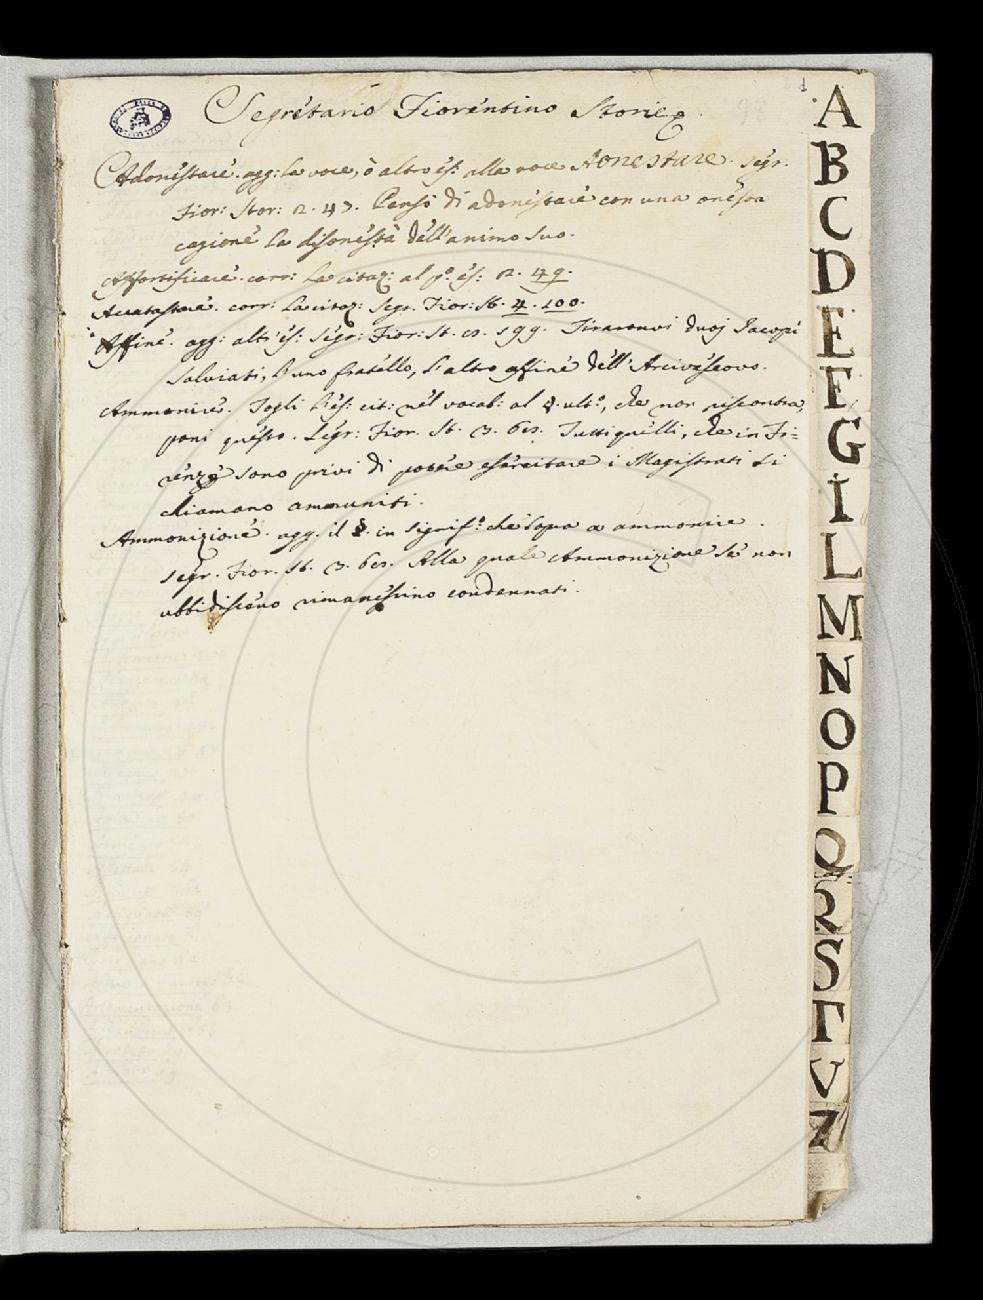 Segretario Fiorentino Storie
98
Adonestare. agg: la voce, ò altro es: alla voce Aonestare. Segr.
Fior: Stor: 2. 47. Pensò di adonestare con una onesta
cagione la disonestà dell'animo suo.
Affortificare. corr: la citaz: al p.º es: 2. 49.
Accatastare. corr: la citaz: Segr. Fior: St. 4. 100.
Affine. agg: altr'es: Segr: Fior: St. 199. Tiraronvi duoj Jacopi
Salviati, l'uno fratello, l'altro affine dell'Arcivescovo.
Ammonire. Togli l'es: cit: nel vocab: al §. ult.º, che non riscontra,
poni questo. Segr: Fior. St. 3. Tutti quelli, che in Fi=
renze sono privi di potere esercitare i Magistrati si
chiamano ammuniti.
Ammonizione. agg. il §. in signif.º che sopra a ammonire.
Segr. Fior. St. 3. Alla quale Ammonizione se non
ubbidiscono rimanessino condennati.
A
B
C
D
E
F
G
I
L
M
N
O
P
Q
R
S
T
V
Z